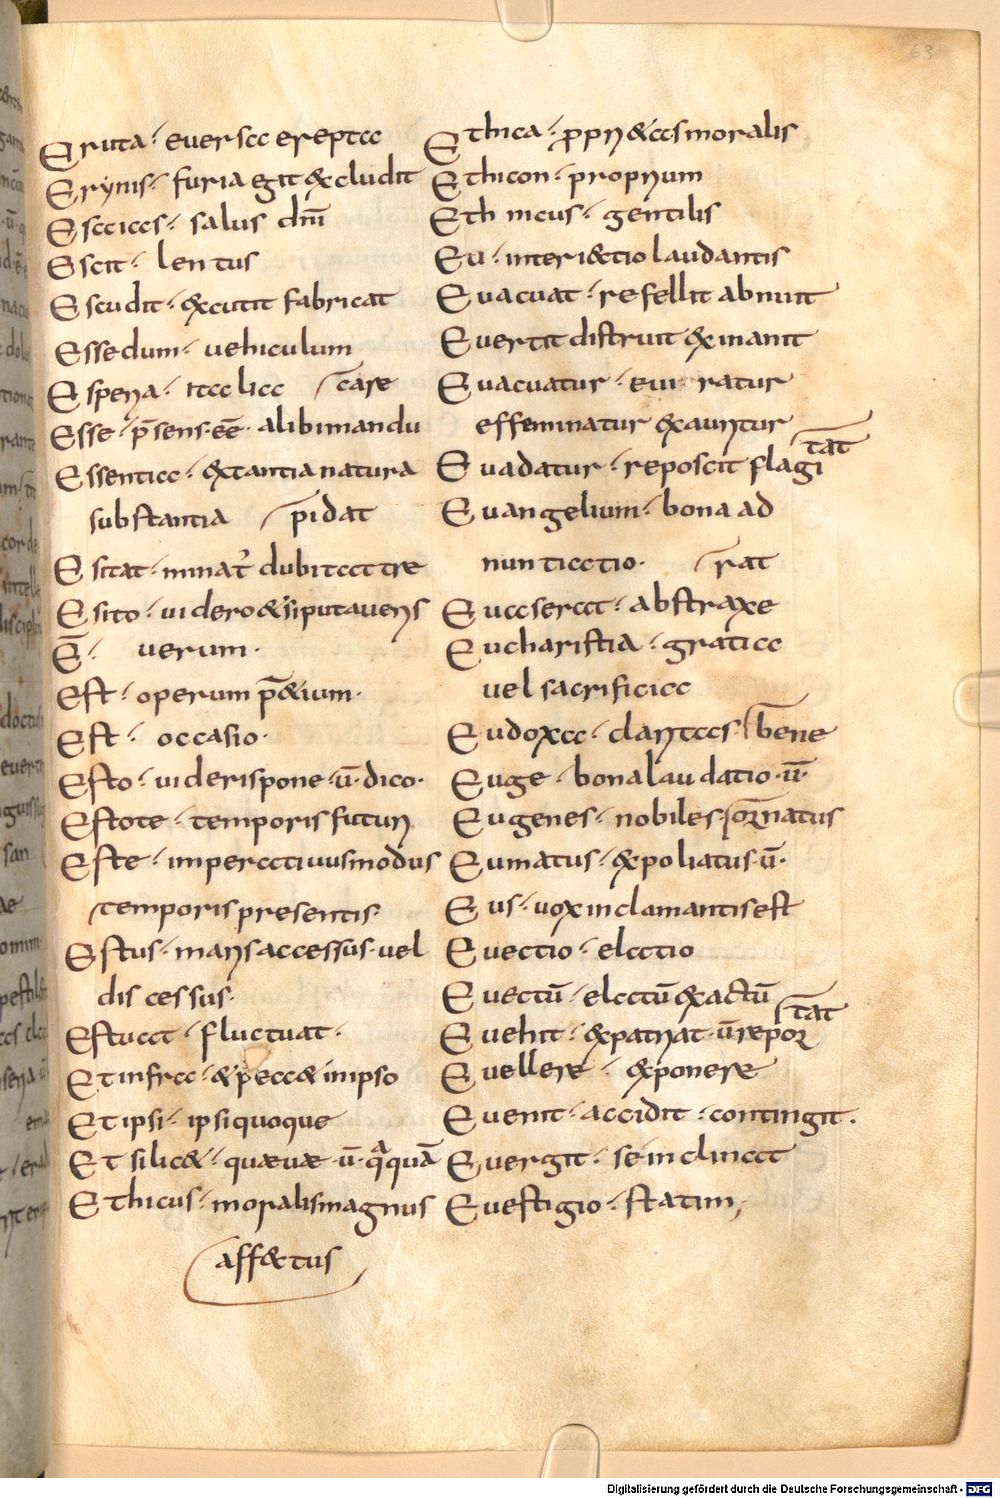 63
Eruta · euersa erepta
Erynis · furia egit excludit
Esaias · salus dn̄i
Esat · lentus
Escudit · excutit fabricat
Essedum · uehiculum
Esperia · italia
care
Esse · p̄sens · ēē · alibi mandu
Essentia · extantia natura
substantia
pidat
Esitat · minat᷑ dubitat tre
Esito · uidero &
Ē · uerum ·
Est · operum p̄&ium ·
Est · occasio ·
Esto · uideris pone · ū · dico ·
Estote · temporis futuri
Este · imperatiuus modus
temporis presentis ·
Estus · maris accessus · uel
discessus ·
Estuat · fluctuat ·
Et infra · & p̄ea & in ipso
Et ipsi · ipsi quoque
Et silic& · quæuæ · ū · quāquā
Ethicus · moralis magnus
affectus
Ethica · propri&as moralis
Ethicon · proprium
Ethnicus · gentilis
Eu · interiectio laudantis
Euacuat · refellit abnuit
Euertit distruit exinanit
Euacuatur · euiratur
effeminatur exauritur
tat
Euadatur · reposcit flagi
Euangelium · bona ad
nuntiatio ·
rat
Euaserat · abstraxe
Eucharistia · gratia
uel sacrificia
Eudoxa · claritas · bene
Euge · bona laudatio · ū ·
Eugenes · nobiles · ornatus
Eumatus · expoliatus · ū ·
Eus · uox inclamantis est
Euectio · elatio
Euectū · elatū exactū
tat
Euehit · expatriat · ū repor
Euellere · exponere
Euenit · accidit · contingit ·
Euergit · se inclinat
Euestigio · statim ;
Digitalisierung gefördert durch die Deutsche Forschungsgemeinschaft - DFG